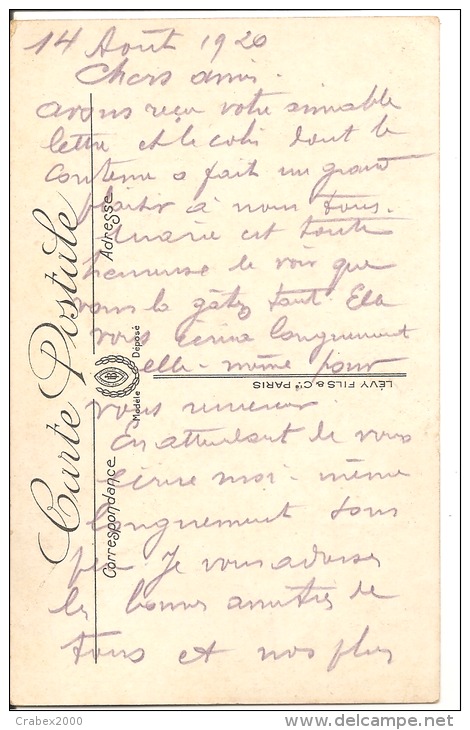 14 Août 1920
Chers amis.
avons reçu votre aimable
lettre et le colis dont le
contenu a fait un grand
plaisir à nous tous.
Marie est toute
heureuse de voir que
vous la gâtez tant. Elle
vous écrira longuement
elle-même pour
vous remercier.
En attendant de vous
écrire moi-même
longuement sous
peu. Je vous adresse
les bonnes amitiés de
tous et nos plus
Carte Postale
Adresse
Correspondance
Modèle Déposé
LÉVY FILS & Cie PARIS
Crabex2000